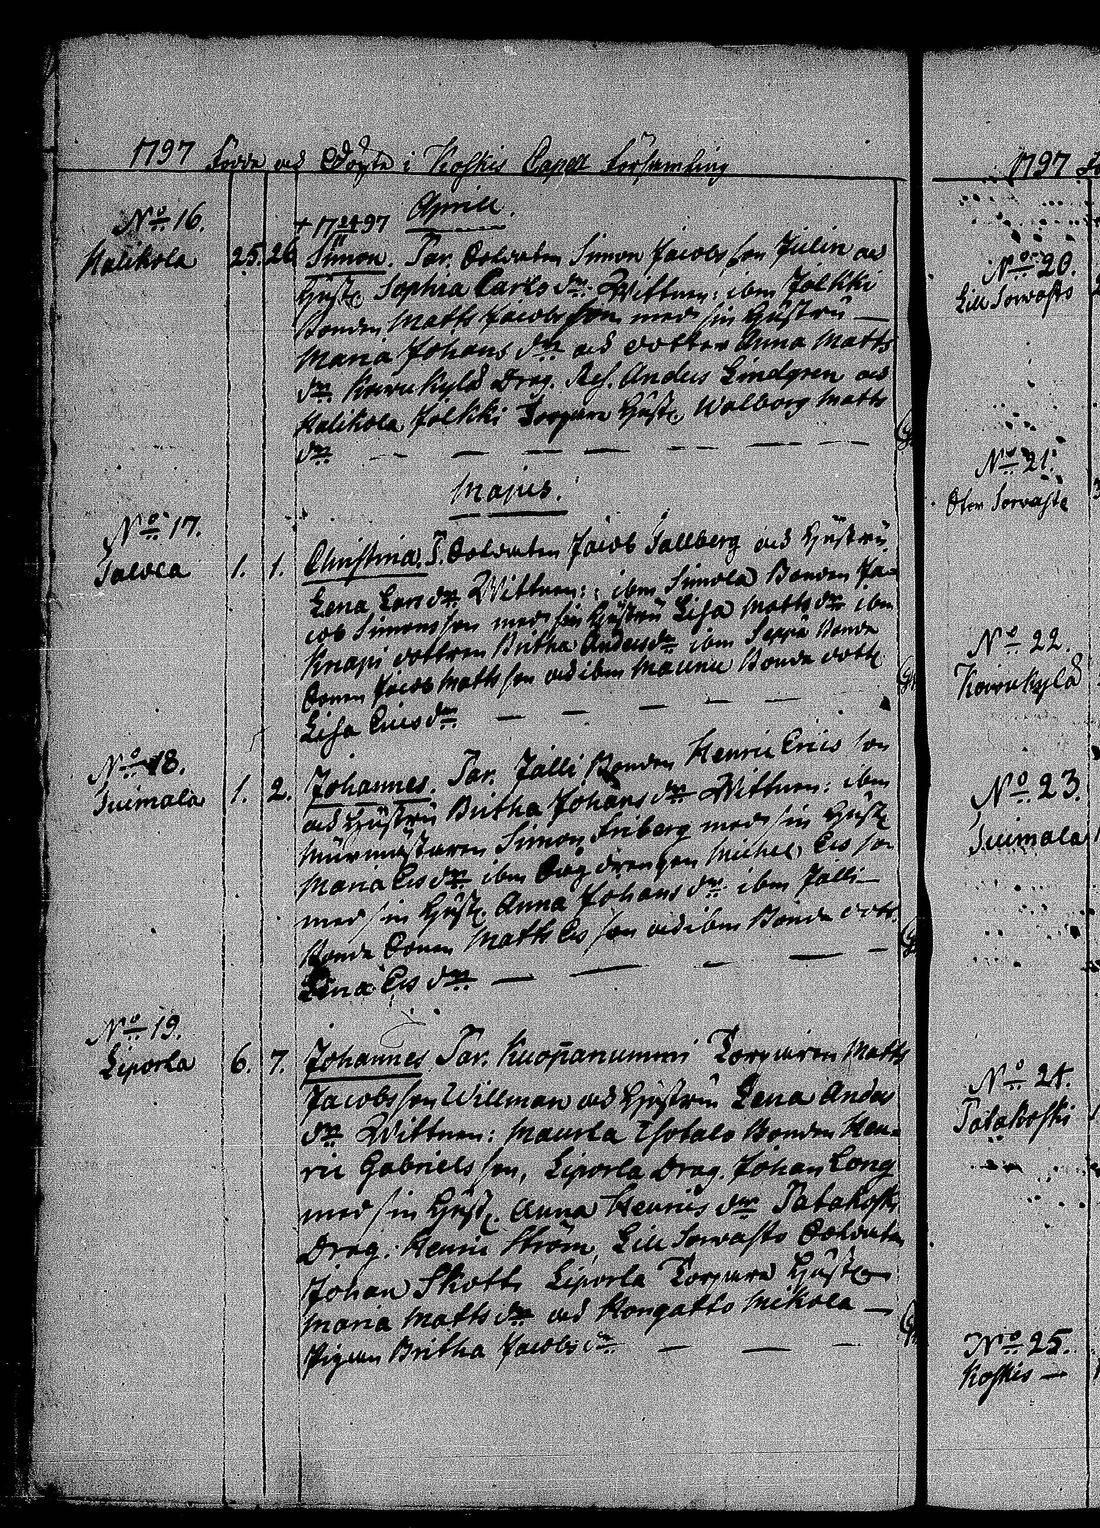 1797 Födde och Döpte i Koskis Capell Församling
Aprill.
No 16.
+ 17 24/4 97
Kalikola 25. 26 Simon. Par. Soldaten Simon Jacobsson Julin och
Hust. Sophia Carlsdr Wittnen: ibm Jölkki
Bonden Matts Jacobsson med sin Hustru —
Maria Johansdr och dotter Anna Matts
dr Kowukylä Drag. Ref. Anders Lindgren och
Kalikola Jölkki Torpare Hust. Walborg Matts
dr — — — — — —
Majus.
No 17.
Talola 1. 1. Christina. P. Soldaten Jacob Tallberg och Hustru
Lena Larsdr Wittnen: ibm Simola Bonden Ja-
cob Simonsson med sin Hustru Lisa Mattsdr ibm
Knapi dottren Britha Andersdr ibm Seppä Bonde
Sonen Jacob Mattsson och ibm Maunu Bonde dott.
Lisa Ericsdr — — — — —
No 18.
Suimala 1. 2. Johannes. Par. Jälli Bonden Henric Ericsson
och Hustru Britha Johansdr Wittnen: ibm
Murmästaren Simon Friberg med sin Hust.
Maria Ersdr ibm Drägdrengen Michel Ersson
med sin Hust. Anna Johansdr ibm Jälli —
Bonde Sonen Matts Ersson och ibm Bonde dott.
Lena Ersdr — — — — —
No 19.
Liporla 6. 7. Johannes Par. Kuopanummi Torparen Matts
Jacobsson Willman och Hustru Lena Anders
dr Wittnen: Maurla Isotalo Bonden Hen-
ric Gabrielsson, Liporla Drag. Johan Long
med sin Hust. Anna Henricsdr Patakoski
Drag. Henric Ström, Lill Sorvasto Soldaten
Johan Skott Liporla Torpare Hustr.
Maria Mattsdr och Kongatto Mikola —
Pigan Britha Jacobsdr — — —
1797
No 20.
Lill Sorvasto
No 21.
Öfver Sorvasto
No 22.
Kowukylä
No 23.
Suimala
No 24.
Patakoski
No 25.
Koskis —